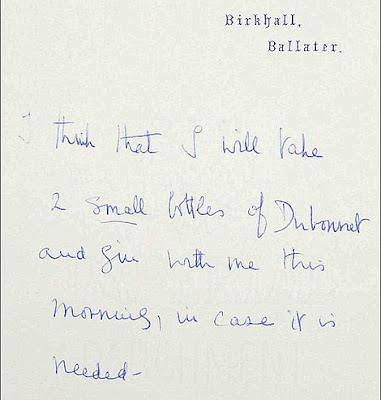 Birkhall,
Ballater.
I think that I will take
2 small bottles of Dubonnet
and gin with me this
morning, in case it is
needed-